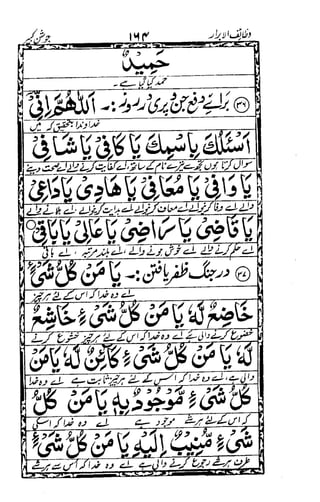 وظائف الابرار ۱۶۴ جوشن کبیر
حَمِیدٌ
حمد کیا گیا ہے
۳۶ برائے دفع جن و پری در روز :۔ اَللّٰھُمَّ اِنِّیْ
خداوندا بتحقیق کہ میں
اَسْئَلُكَ بِاسْمِكَ یَا کَافِیْ یَا شَافِیْ
سوال کرتا ہوں تجھ سے تیرے نام کے ساتھ اے کفایت کرنے والے اے صحت دینے
یَا وَافِیْ یَا مُعَافِیْ یَا هَادِیْ یَا دَاعِیْ
والے اے وفا کرنے والے اے معاف کرنے والے اے ہدایت کرنے والے اے بلانے والے
یَا قَاضِیْ یَا رَاضِیْ یَا عَالِیْ یَا بَاقِیْ
اے حکم کرنے والے اے خوش ہونے والے اے بلند مرتبہ اے باقی
۳۷ در جنگ ظفر یافتن :۔ یَا مَنْ کُلُّ شَیْءٍ
اے وہ خدا کہ اس کے لئے ہر چیز
خَاضِعٌ لَهٗ یَا مَنْ کُلُّ شَیْءٍ خَاشِعٌ
خضوع کرنے والی ہے اے وہ خدا کہ اس کے لئے ہر چیز خشوع کرنے
لَهٗ یَا مَنْ کُلُّ شَیْءٍ کَائِنٌ لَهٗ یَا مَنْ
والی ہے، اے وہ خدا کہ اس کے لئے ہر چیز ثابت ہے اے وہ خدا
کُلُّ شَیْءٍ مَوْجُودٌ بِهٖ یَا مَنْ کُلُّ
کہ اس کے لئے ہر شے موجود ہے اے وہ خدا کہ اسکی
شَیْءٍ مُّنِیْبٌ اِلَیْهِ یَا مَنْ کُلُّ شَیْءٍ
طرف ہر شے رجوع کرنے والی ہے اے وہ خدا کہ اس سے ہر شے